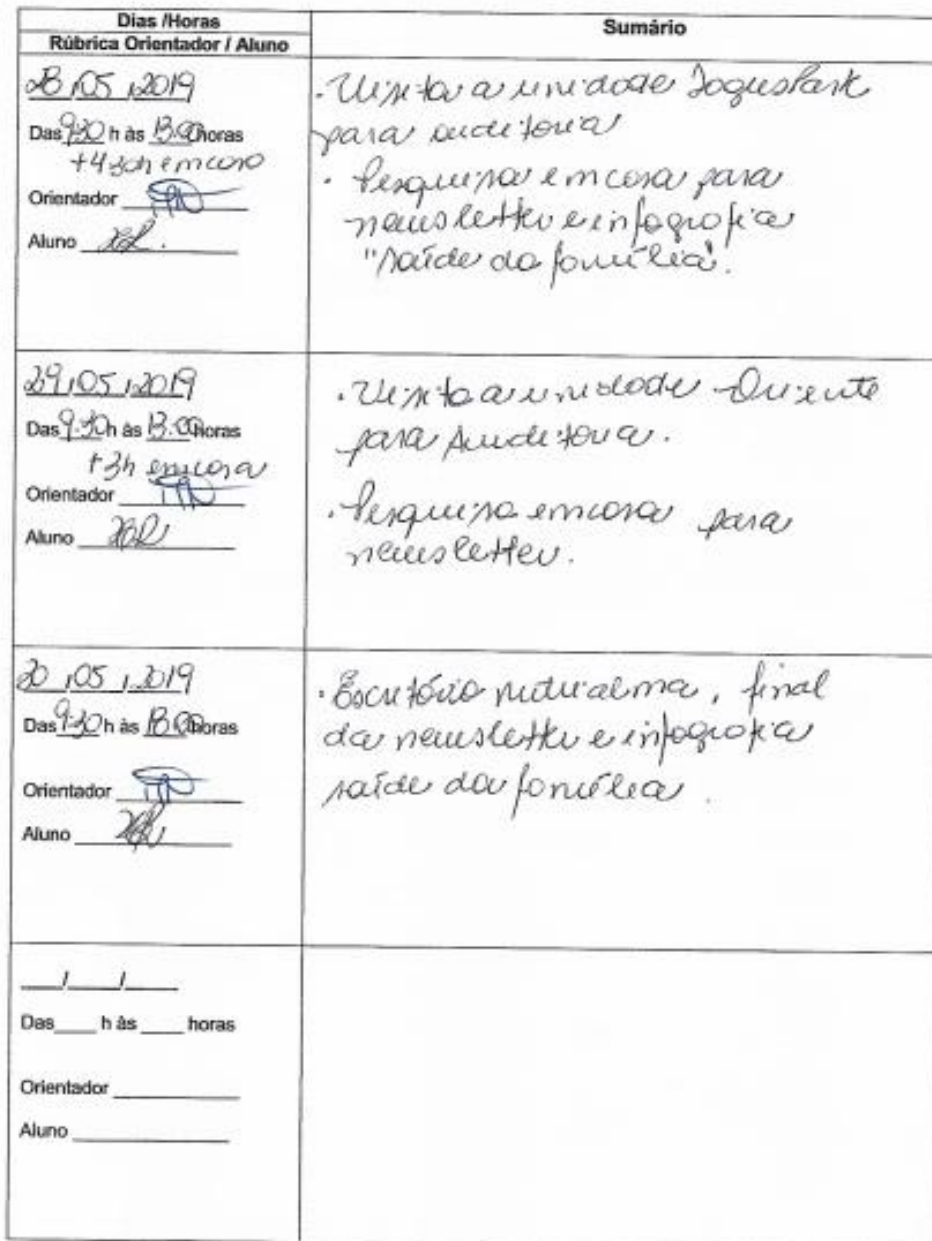 Dias /Horas
Rúbrica Orientador / Aluno
Sumário
28/05/2019
Das 9:30 h às 13:00 horas
+4:30h em casa
Orientador
Aluno
. Visita a unidade
para auditoria
. Pesquisa em casa para
newsletter e infografia
"saúde da família".
29/05/2019
Das 9:30h às 13:00 horas
+3h em casa
Orientador
Aluno
. Visita a unidade Oriente
para Auditoria.
. Pesquisa em casa para
newsletter.
/05/2019
Das 9:30h às 18:00 horas
Orientador
Aluno
. Escritório nutrialma, final
da newsletter e infografia
saúde da família.
__/__/__
Das____ h às ____ horas
Orientador
Aluno